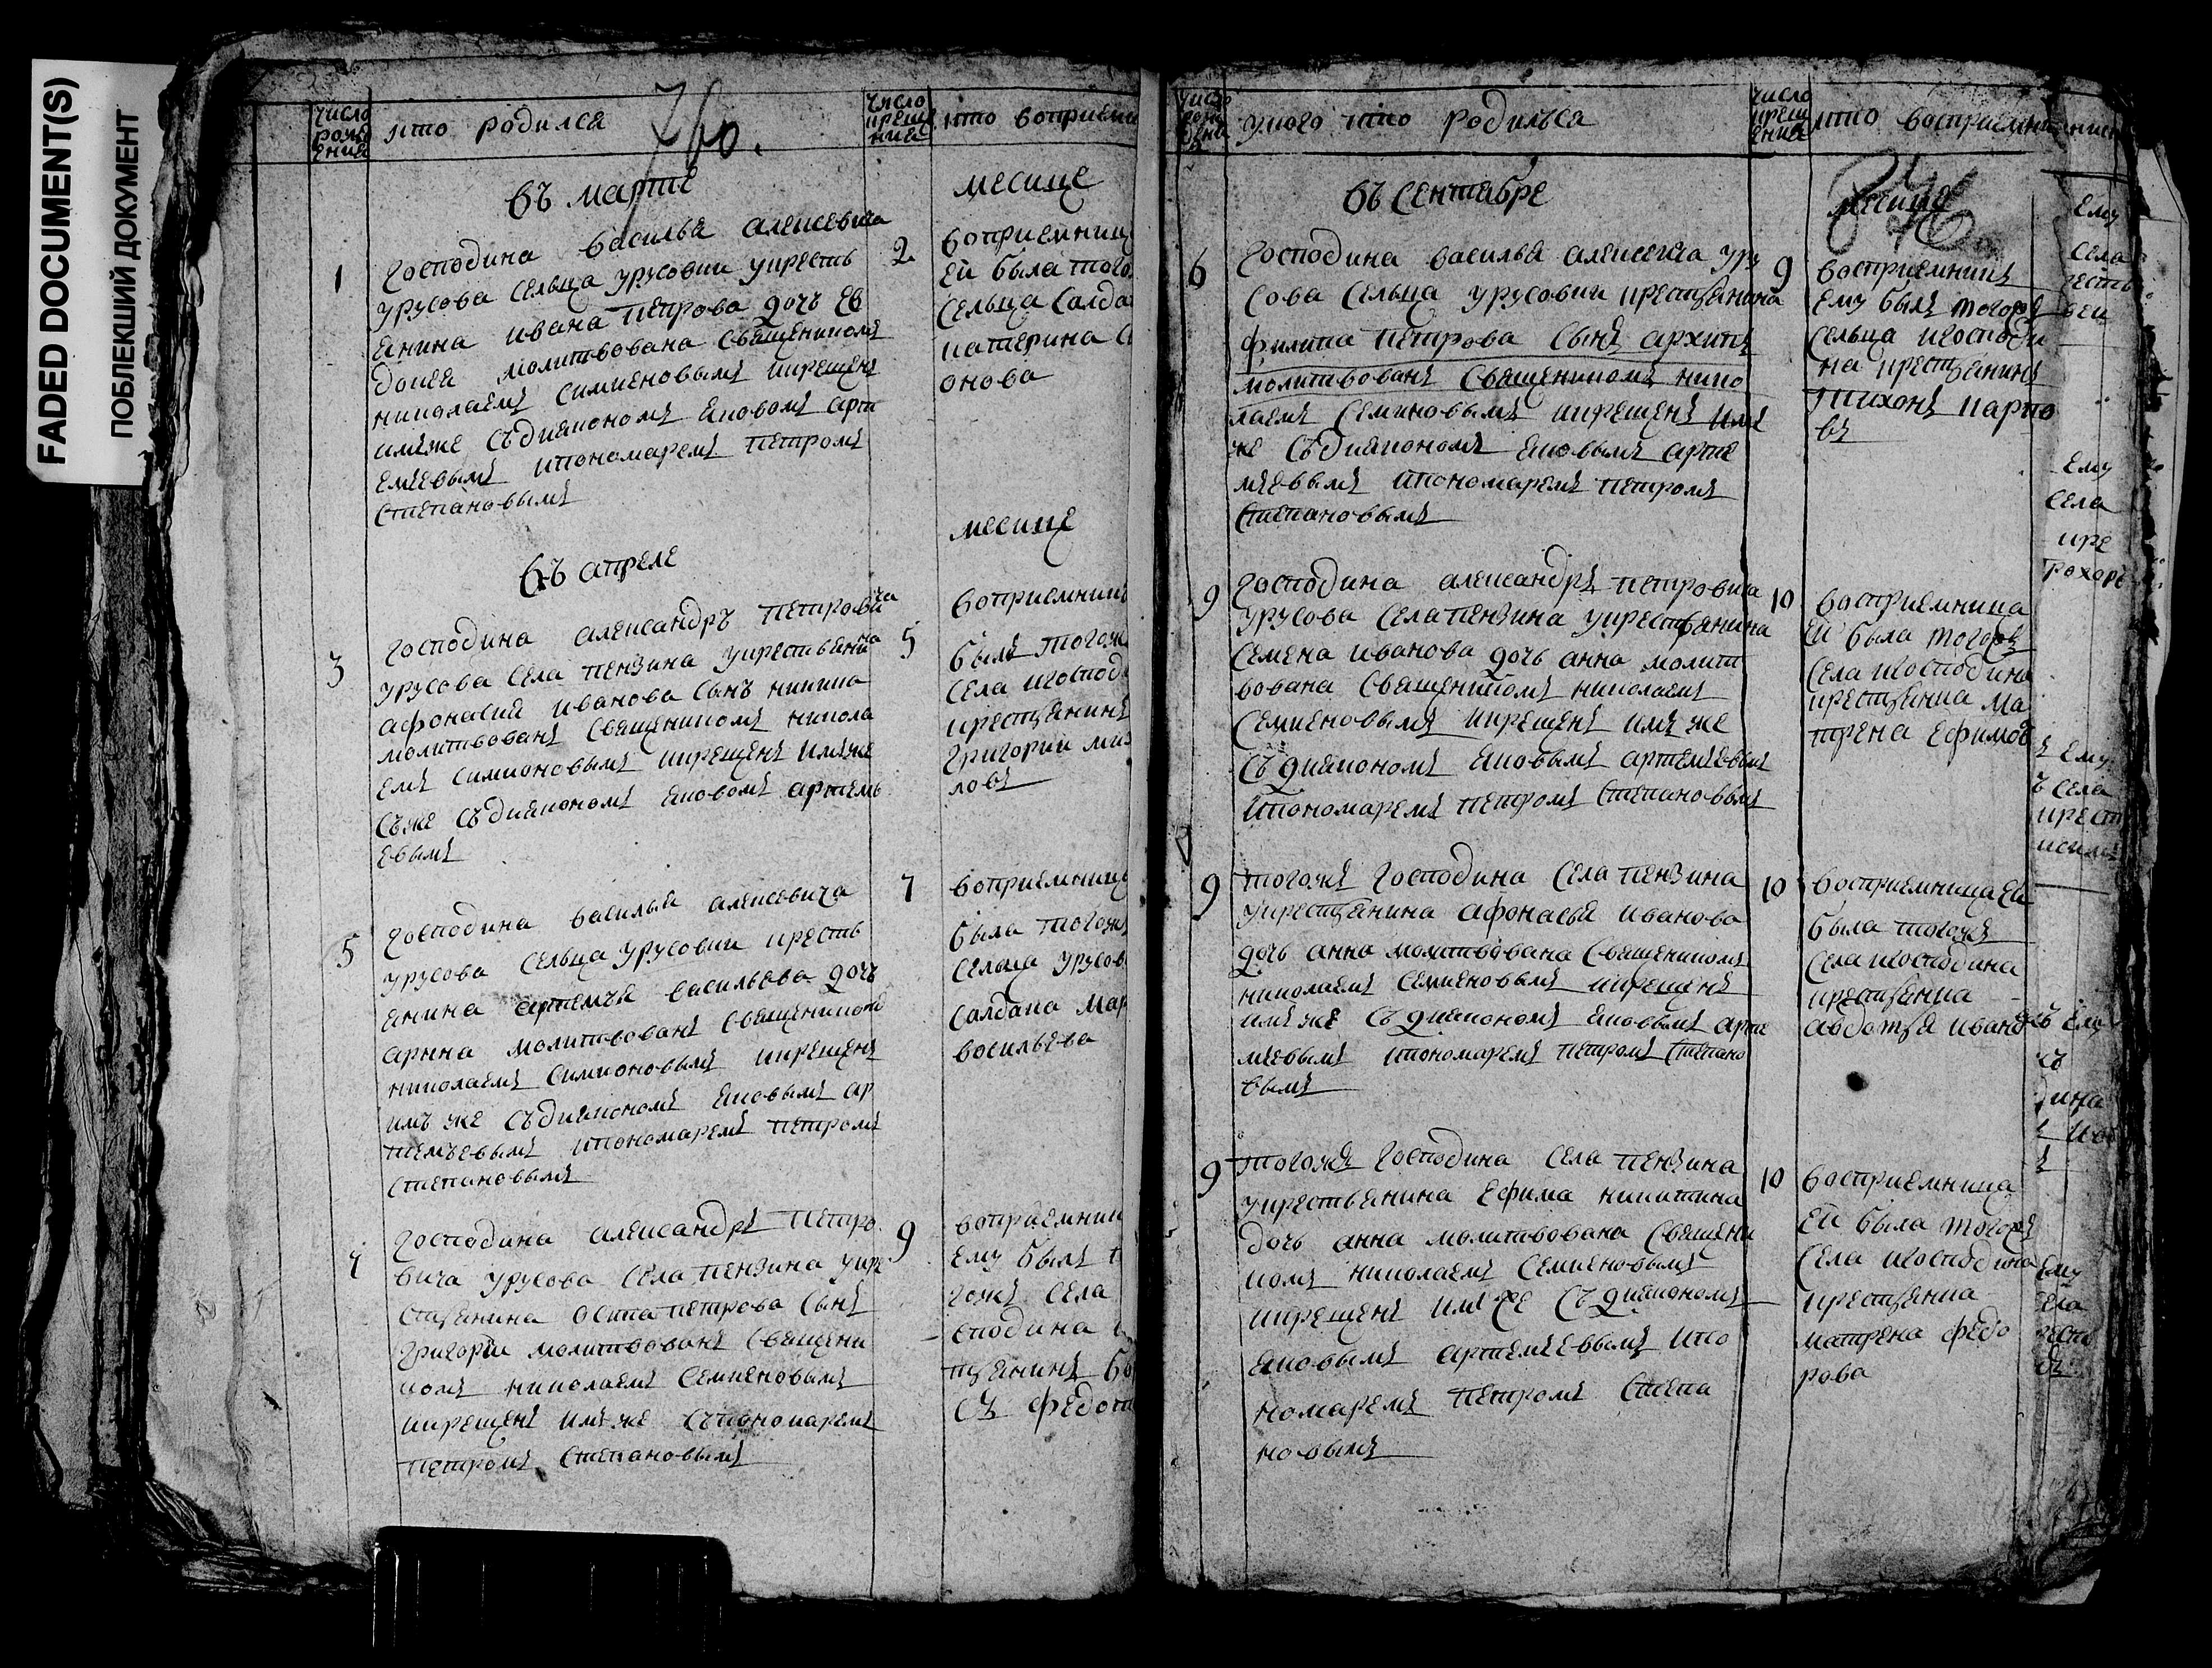 FADED DOCUMENT(S)
ПОБЛЕКШИЙ ДОКУМЕНТ
число рождения
кто родился
число крещения
кто воприемни
въ марте
месице
1
Господина василья алексевича
урусова Селца урусовки укресть
янина ивана петрова дочь ев
докея молитвована Священникомъ
николаемъ Симионовымъ икрещенъ
имъже Съдияконом яковом арти
емъевымъ ипономаремъ петромъ
Степановымъ
2
воприемниц
ей была того
Сельца Салда
катерина С
онова
въ апреле
месице
3
господина александръ петровича
урусова Села пензина укрестьянина
афонасия иванова Сынъ никита
молитвованъ Священникомъ никола
емъ Симионовымъ икрещенъ имъже
Съже Съдияконом яковом артемь
евымъ
5
воприемникъ
былъ тогоже
Села игоспод
крестьянинъ
григории ми
ловъ
5
господина василья алексевича
урусова Сельца урусовки кресть
янина артемъя васильева дочь
арина молитвованъ Священником
николаемъ Симионовымъ икрещенъ
имъ же Съдияконом яковымъ ар
темъевымъ ипономаремъ петромъ
Степановымъ
7
воприемница
была тогожъ
Сельца урусов
Салдака мар
васильева
7
господина александръ петро
вича урусова Села пензина укре
стьянина осипа петрова Сынъ
григорей молитвованъ Священи
комъ николаемъ Семионовымъ
икрещенъ имъже Съпономаремъ
петромъ Степановымъ
9
воприемник
ему былъ т
гожъ Села
сподина
тьянинъ бо
съ федот
число рождения
укого кто родилься
число крещения
кто восприемни
въ Сентябре
месице
6
господина василья алексевича уру
сова Сельца урусовки крестьянина
филипа петрова Сынъ архипъ
молитвованъ Священникомъ нико
лаемъ Семионовымъ икрещенъ имъ
же Съдияконом яковымъ арте
мъевымъ ипономаремъ петромъ
Степановымъ
9
восприемникъ
ему былъ тогоже
Сельца игосподи
на крестьянинъ
тихонъ карпо
въ
9
господина александръ петровича
урусова Села пензина укрестьянина
Семена иванова дочь анна молит
вована Священникомъ николаемъ
Семионовымъ икрещенъ имъ же
Съ дияконом яковымъ артемъевым
ипономаремъ петромъ Степановым
10
восприемница
ей была тогоже
Села игосподина
крестьянка ма
трена ефимов
9
тогожъ господина Села пензина
укрестьянина афонасья иванова
дочь анна молитвована Священником
николаемъ Семионовымъ икрещенъ
имъ же Съ дияконом яковымъ арте
мъевымъ ипономаремъ петром Степано
вымъ
10
восприемница ей
была тогожъ
Села игосподина
крестьянка
авдотья иван
9
тогожъ господина Села пензина
укрестьянина ефима никитина
дочь анна молитвована Священи
комъ николаемъ Семионовымъ
икрещенъ имъже Съ дияконом
яковымъ артемъевымъ ипо
номаремъ петромъ Степа
новымъ
10
восприемница
ей была тогожъ
Села игосподина
крестьянка
матрена федо
рова
ему
Села
ему
Села
кре
рохоръ
ему
Села
крест
ему
Села